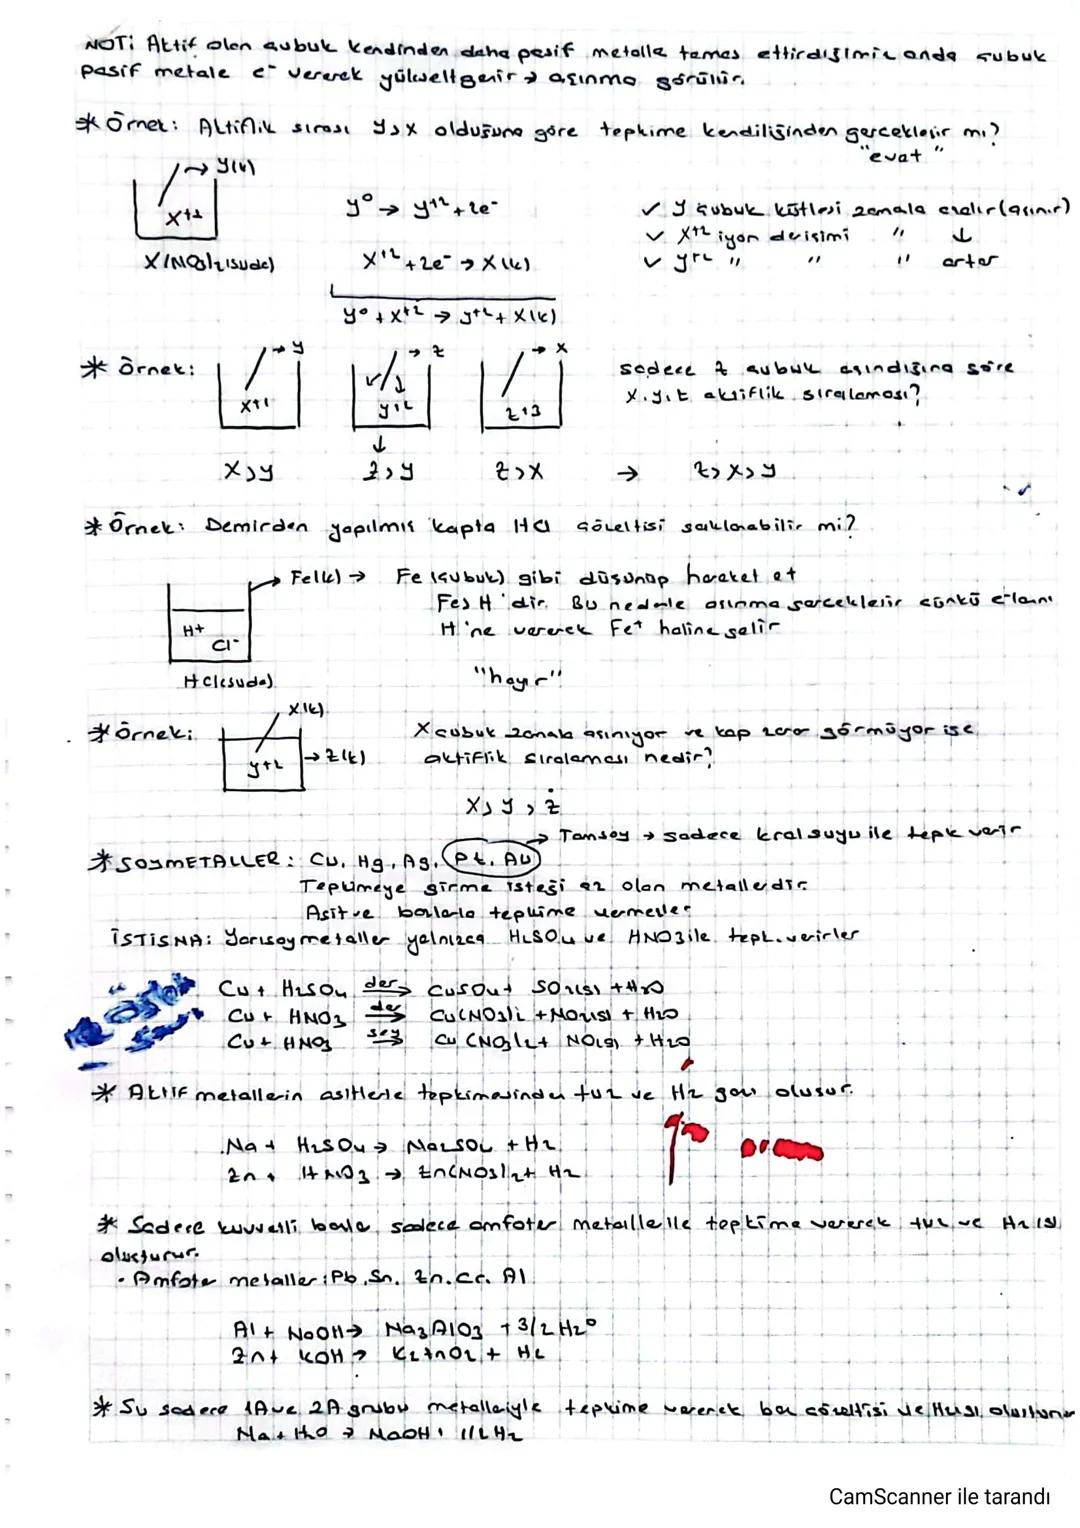 NOT: Aktif olan çubuk kendinden daha pasif metalle temas ettirdiğimiz anda çubuk
pasif metale e⁻ vererek yükseltgenir → aşınma görülür.
* Örnek: Aktiflik sırası y>x olduğuna göre tepkime kendiliğinden gerçekleşir mi?
"evet"
→ y(k)
X⁺²
X(NO3)2(suda)
y⁰ → y⁺² + 2e⁻
X⁺² + 2e⁻ → X(k)
y⁰ + X⁺² → y⁺² + X(k)
✓ y çubuk kütlesi zamala azalır (aşınır)
✓ X⁺² iyon derişimi " ↓
✓ y⁺² " " " artar
* Örnek:
→ y → z → x
X⁺¹ y⁺² z⁺³
sadece z çubuk aşındığına göre
x, y, z aktiflik sıralaması?
X>y z>y z>X → z>X>y
* Örnek: Demirden yapılmış kapta HCl çözeltisi saklanabilir mi?
→ Fe(k) → Fe (çubuk) gibi düşünüp hareket et
Fe>H'dir. Bu nedenle aşınma gerçekleşir çünkü e⁻larını
H'ne vererek Fe⁺ haline gelir
H⁺
Cl⁻
HCl(suda)
"hayır"
* Örnek:
X(k)
y⁺² → z(k)
X çubuk zamanla aşınıyor ve kap zarar görmüyor ise
aktiflik sıralaması nedir?
X>y>z
→ Tamsoy → sadece kral suyu ile tepk verir
* SOYMETALLER: Cu, Hg, Ag, Pt, Au
Tepkimeye girme isteği az olan metallerdir.
Asit ve bazlarla tepkime vermezler
İSTİSNA: Yarısoymetaller yalnızca H2SO4 ve HNO3 ile tepk. verirler
Cu + H2SO4 der→ CuSO4 + SO2(g) + H2O
Cu + HNO3 der→ Cu(NO3)2 + NO2(g) + H2O
Cu + HNO3 sey→ Cu(NO3)2 + NO(g) + H2O
* Aktif metallerin asitlerle tepkimesinden tuz ve H2 gazı oluşur.
Na + H2SO4 → Na2SO4 + H2
Zn + HNO3 → Zn(NO3)2 + H2
* Sadece kuvvetli bazla, sadece amfoter metaller ile tepkime vererek tuz ve H2(g)
oluşturur.
• Amfoter metaller: Pb, Sn, Zn, Cr, Al
Al + NaOH → Na3AlO3 + 3/2 H2
Zn + KOH → K2ZnO2 + H2
* Su sadece 1A ve 2A grubu metalleriyle tepkime vererek baz çözeltisi ve H2(g) oluşturur
Na + H2O → NaOH + 1/2 H2
CamScanner ile tarandı